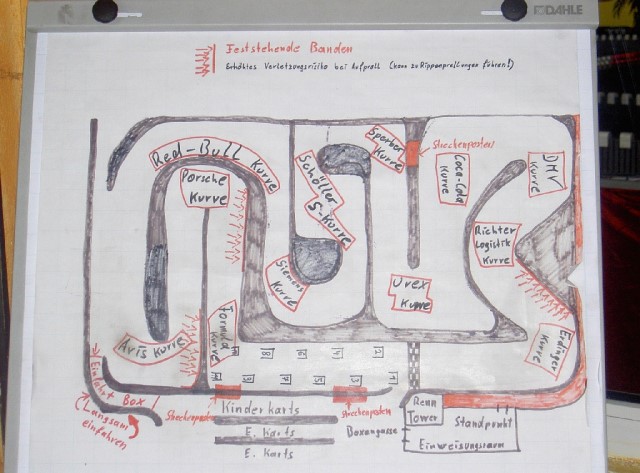 DAHLE
Feststehende Banden
Erhöhtes Verletzungsrisiko bei Aufprall (kann zu Rippenprellungen führen!)
Red-Bull Kurve
Porsche
Kurve
Schöller
S-Kurve
Sparber
Kurve
Streckenposten
Coca-Cola
Kurve
DMV
Kurve
Richter
Logistik
Kurve
Siemens
Kurve
Urex
Kurve
Erdinger
Kurve
Avis Kurve
Formula
Kurve
8
6
4
2
7
5
3
1
Einfahrt Box!
Langsam
einfahren
Streckenposten
Kinderkarts
Streckenposten
E. Karts
E. Karts
Boxengasse
Renn
Tower
Standpunkt
Einweisungsraum